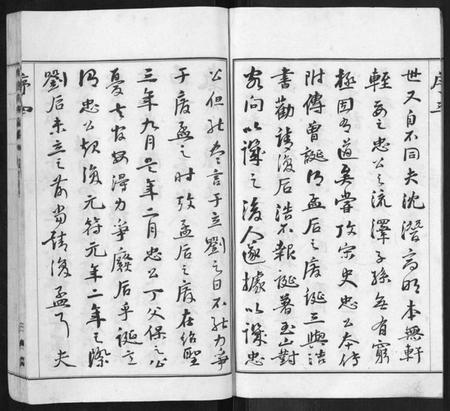 序三
世又自不同夫沈潛高明本無軒
輊要之忠公之流澤子孫無有窮
極固有道矣嘗攷宋史忠公本傳
附傳曾誕以孟后之廢誕三與浩
書勸請復后浩不報誕著玉山對
客問以譏之後人遂據以譏忠
公但能盡言于立劉之日不能力爭
于廢孟之時攷孟后之廢在紹聖
三年九月是年二月忠公丁父保之公
憂去安得力爭廢后乎誕之
以忠公起復元符元年二年之際
劉后未立之前當請復孟耳夫
序四